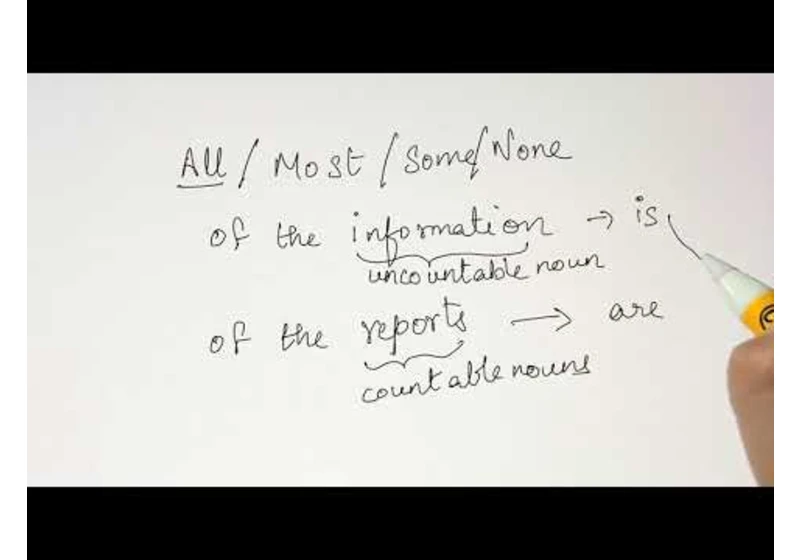 All / Most / Some/None
of the information → is
uncountable noun
of the reports → are
countable nouns